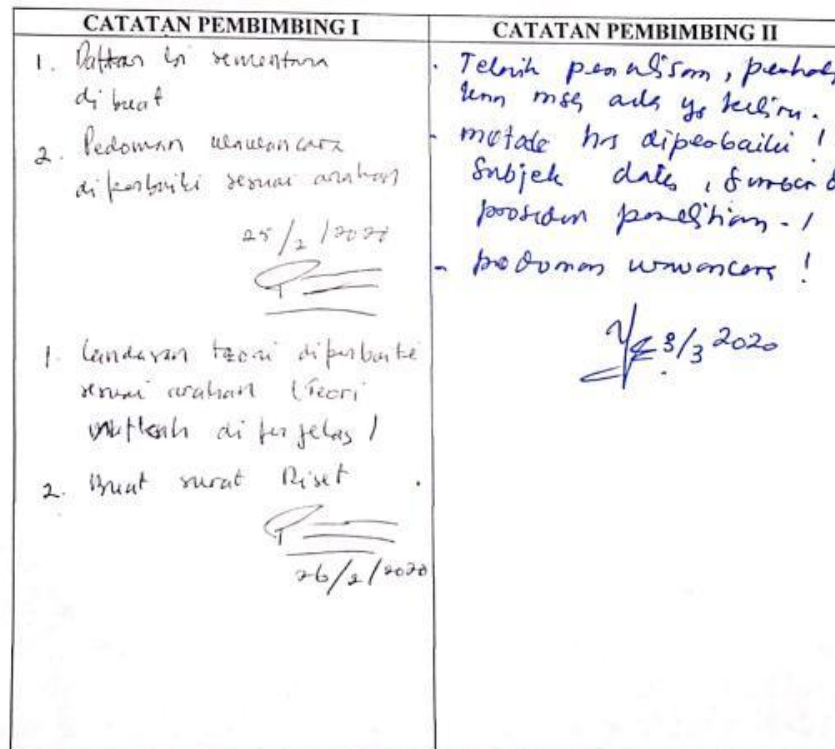 CATATAN PEMBIMBING I
1. Daftar isi sementara
dibuat
2. Pedoman wawancara
diperbaiki sesuai arahan
25/2/2020
1. Landasan teori diperbaiki
sesuai arahan (Teori
diperjelas)
2. Buat surat Riset
26/2/2020
CATATAN PEMBIMBING II
- Teknik penulisan,
msh ada yg keliru.
- metode hrs diperbaiki!
Subjek data, sumber
prosedur penelitian - !
- pedoman wawancara!
3/3 2020